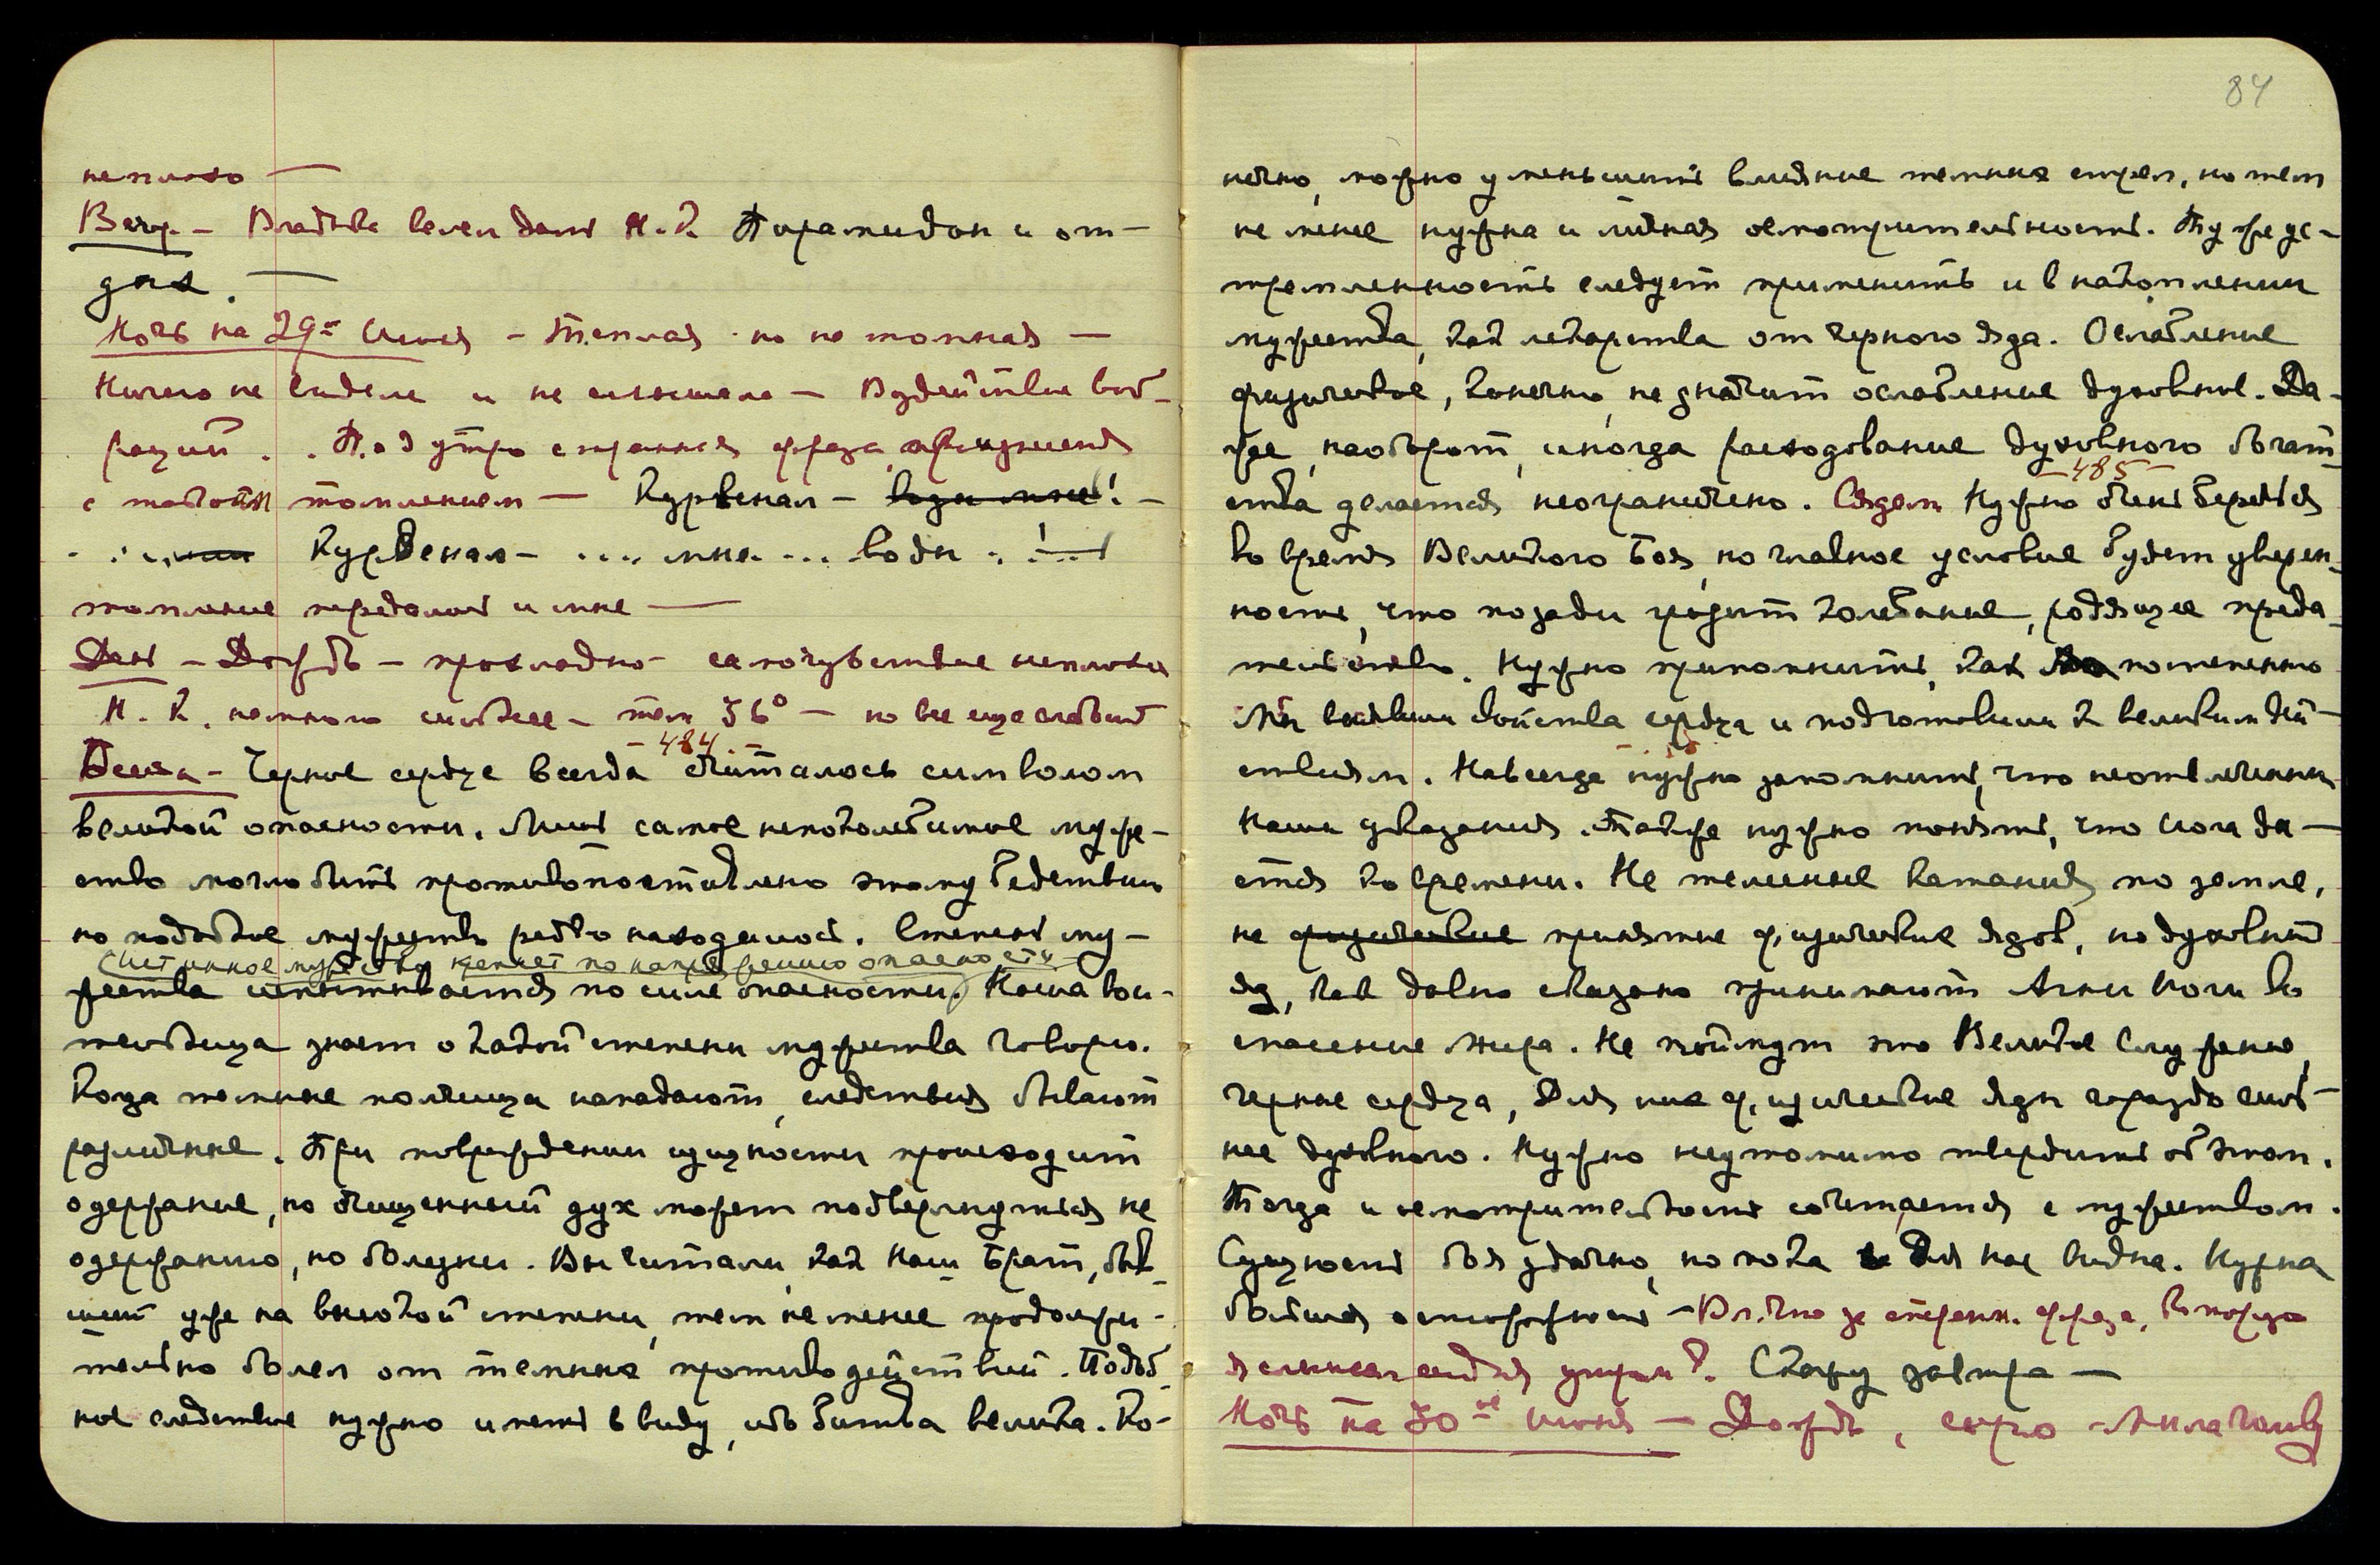 неплохо —
Вечер. — Владыка велел дать Н.К. Пирамидон и от-
дых. —
Ночь на 29ое Июня — Теплая но не томная —
Ничего не видела и не слышала — Воздействие виб-
раций. . Под утро странная фраза
с таботаин томлением — Курвенал — воды мне! —
Курвенал — .... мне ... воды . . !
томление передалось и мне —
День — Дождь — прохладно — самочувствие неплохо
Н.К. немного сильнее — тем 36° — но все еще слабит
— 484. —
Беседа — Черное сердце всегда считалось символом
великой опасности. Лишь самое непоколебимое муже-
ство могло быть противопоставлено этому бедствию
но подобное мужество редко находилось. Степень му-
Истинное мужество крепнет по напряжению опасности
жества испытывается по силе опасности. Наша вои-
тельница знает о какой степени мужества говорю.
Когда темные полчища нападают, следствия бывают
различные. При повреждении сущности происходит
одержание, но очищенный дух может подвергнуться не
одержанию, но болезни. Вы читали, как Наш Брат, быв-
ший уже на высокой степени, тем не менее продолжи-
тельно болел от темных противодействий. Подоб-
ное следствие нужно иметь в виду, ибо битва велика. Ко-
84
нечно, можно уменьшить влияние темных стрел, но тем
не менее нужна и личная осмотрительность. Ту же ус-
тремленность следует применить и в накоплении
мужества, как лекарства от черного яда. Ослабление
физическое, конечно, не значит ослабление духовное. Да-
же, наоборот, иногда расходование духовного богат-
— 485 —
ства делается неограничено. Сядем Нужно очень беречься
во время Великого Боя, но главное условие будет уверен-
ность, что позади грозит колебание, родящее преда-
тельство. Нужно припомнить, как постепенно
Мы свойства сердца и подготовили к великим дей-
ствиям. Навсегда нужно запомнить, что неотвлеченны
Наши указания. Также нужно понять, что Йога да-
ется ко времени. Не телесные катания по земле,
не физические принятие физические ядов, но духовный
яд, как давно сказано принимают Агни Йоги во
спасение мира. Не поймут это Великое Служение,
черные сердца, Для них физические яды гораздо силь-
нее духовного. Нужно неутомимо твердить об этом.
Тогда и осмотрительность сочетается с мужеством.
Сущность боя удачно, но пока для нас видна. Нужна
большая осторожность — Вл. что за странн. фраза, которую
я слышала сегодня утром? Скажу завтра —
Ночь на 30ое Июня — Дождь, сыро —